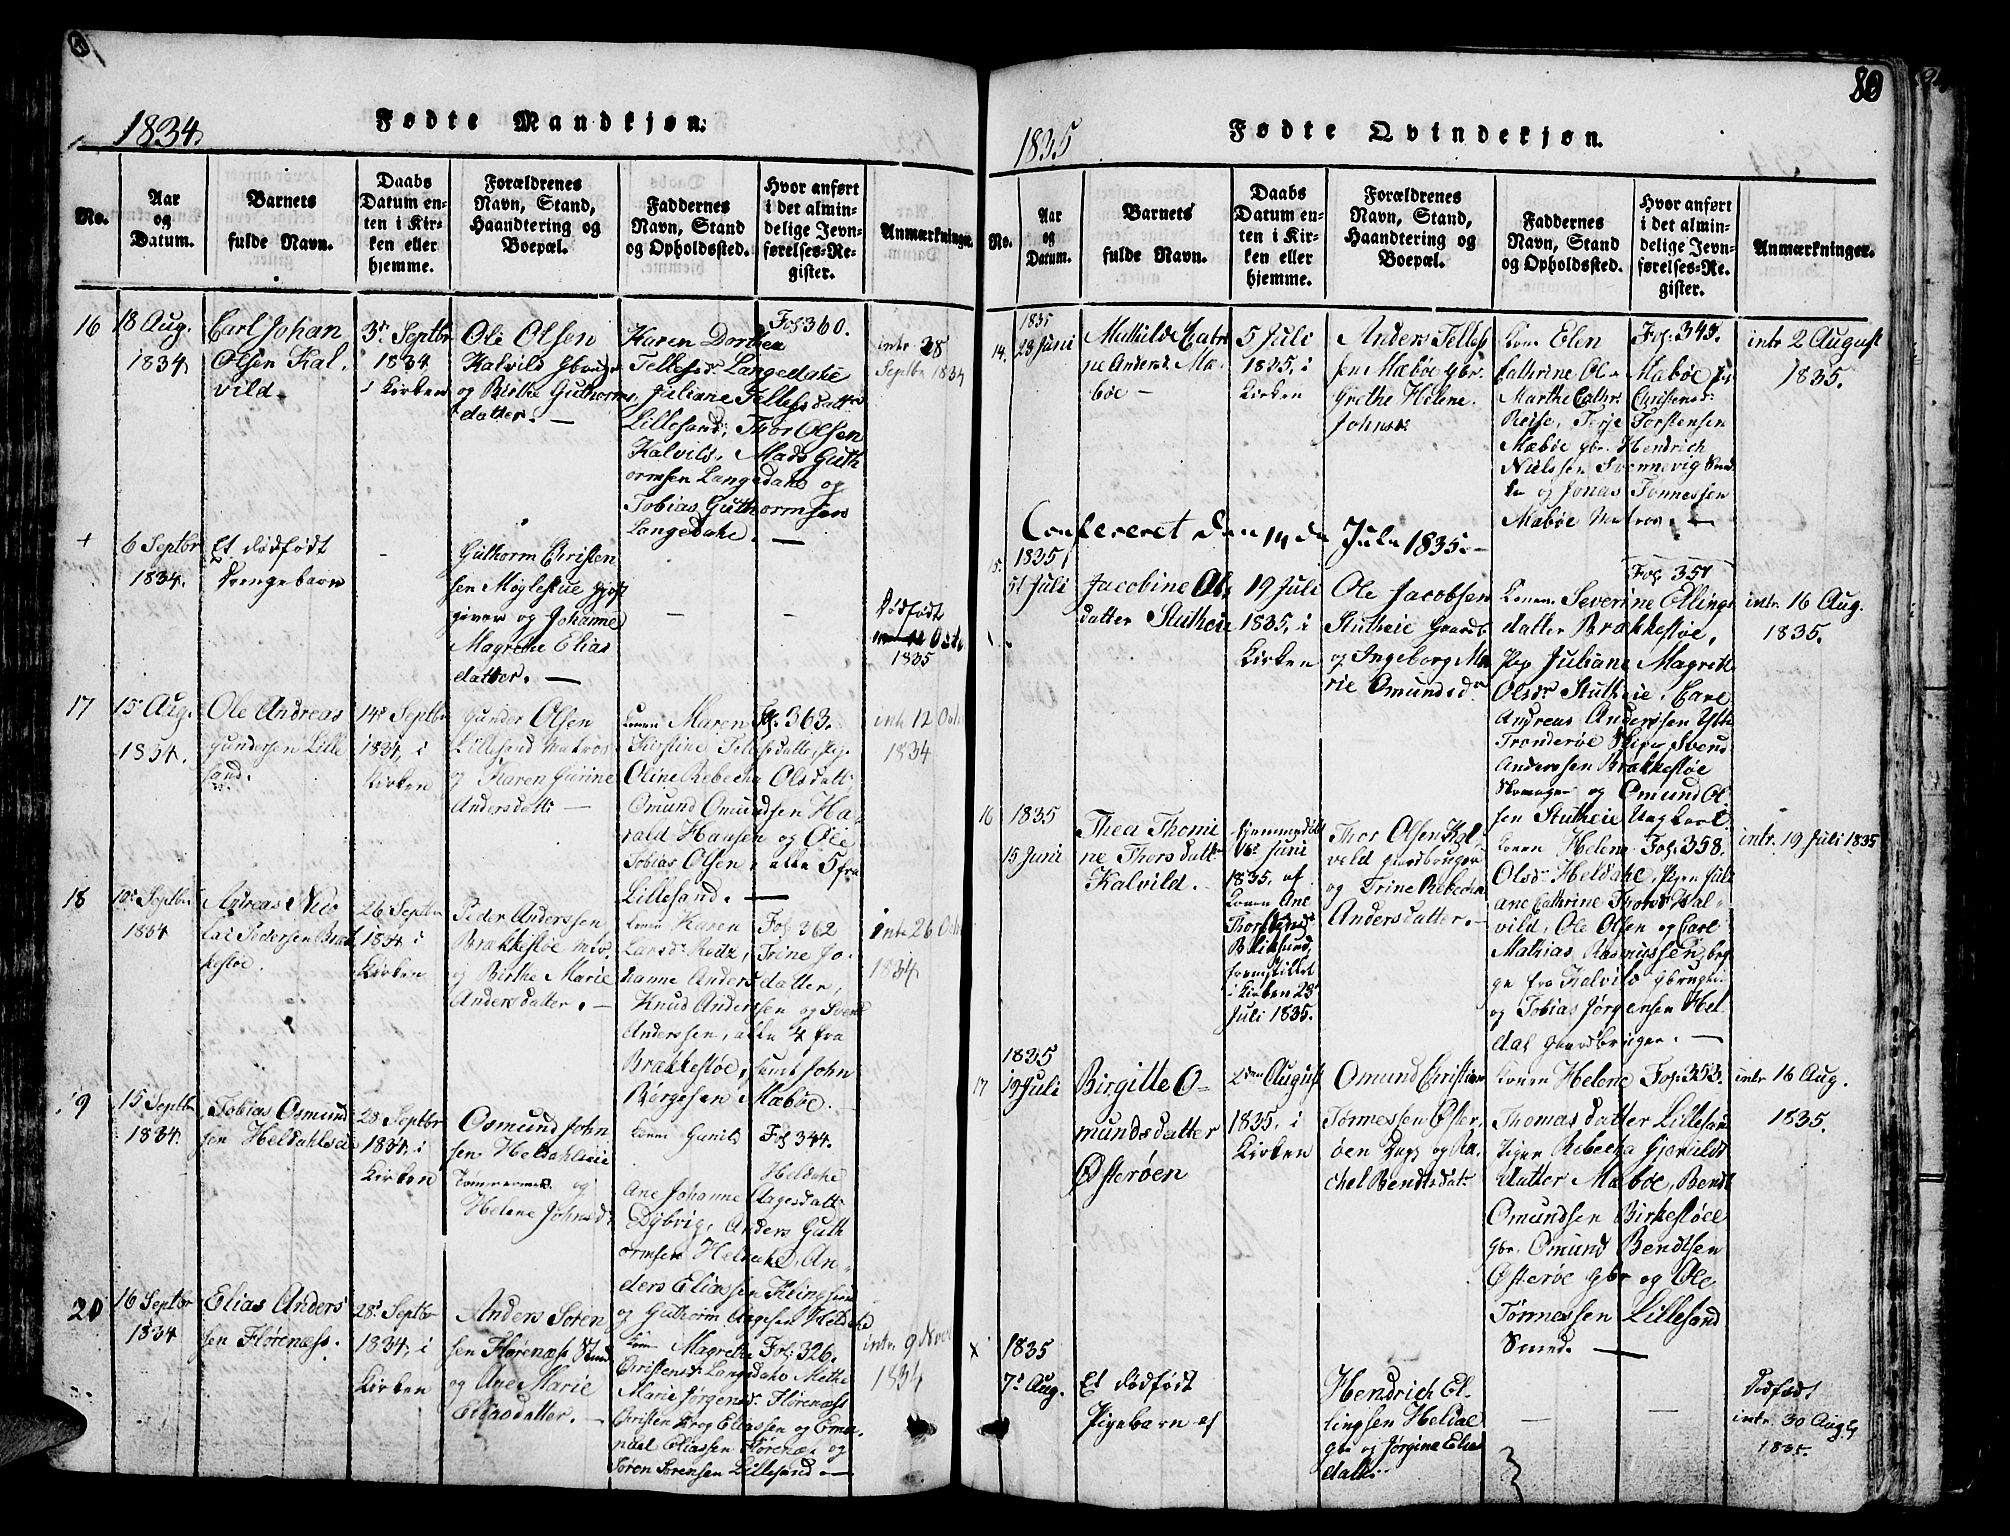 1834.
Fødte Mandkjøn.
No.
Aar og Datum.
Barnets fulde Navn.
Daabs Datum enten i Kirken eller hjemme.
Forældrenes Navn, Stand, Haandtering og Boepæl.
Faddernes Navn, Stand og Opholdssted.
Hvor anført i det almindelige Jevnførelses-Register.
Anmærkninger.
16
18 Aug.
1834
Carl Johan
Olsen Kal-
vild.
3 Septbr
1834
i Kirken
Ole Olsen
Kalvild
og Birthe Guthorms
datter.
Karen Dorthea
Tellefsdr Langedahe
Juliane Tellefsdatter
Lillesand, Thor Olsen
Kalvild, Mads Guth
ormsen Langedahe og
Tobias Guthormsen
Langedahe.
Fol 360.
intr 28
Septbr 1834
+
6 Septbr
1834.
Et dødfødt
Drengebarn
Guthorm Christen
sen Møglestue gjæst
giver og Johanne
Magrethe Elias
datter.
Dødfødt
1835
17
15 Aug.
1834.
Ole Andreas
Gundersen Lille
sand.
14 Septbr
1834, i
Kirken
Gunder Olsen
Lillesand Matros
og Karen Gurine
Andersdatter
Konen Maren
Kirstine
Oline Rebecka Olsdatt.
Omund Omundsen Ha-
rald Hansen og Ole
Tobias Olsen, alle 5 fra
Lillesand.
Fol 363.
intr 12 Octr
1834
18
10 Septbr
1834
Andreas Nico
lai Pedersen Bræk
kestøe.
26 Septbr
1834 i
Kirken
Peder Anderssen
Brækkestøe
og Birthe Marie
Andersdatter.
Konen Karen
Larsdr
Trine Jo-
hanne Andersdatter,
Knud Anderssen og Svend
Anderssen, alle 4 fra
Brækkestøe, samt John
Børgesen Mæbøe.
Fol 362
intr 26 Octr
1834
19
15 Septbr
1834.
Tobias Osmund
sen Heldahlseie
28 Septbr
1834, i
Kirken
Osmund John
sen Heldahlseie
Tømmermand og
Helene Johnsdr.
Konen Gunild
Heldahe
Ane Johanne Aagesdatt
Dybvig, Anders Guth
ormsen Heldahe, An-
ders Eliassen Klingsund
og Guthorm Aagesen Heldahe
Fol 344.
20
16 Septbr
1834
Elias Anders
sen Florenæss.
28 Septbr
1834, i
Kirken
Anders Søren
sen Florenæss
og Ane Marie
Eliasdatter.
Konen Magrethe
Christensdr Langedahe Methe
Marie Jørgensdr Florenæss
Christen Krog Eliassen og Ema-
nuel Eliassen Florenæs og
Søren Sørensen Lillesand.
Fol 326.
intr 9 Novr
1834
80
1835
Fødte Qvindekjøn.
No.
Aar og Datum.
Barnets fulde Navn.
Daabs Datum enten i Kirken eller hjemme.
Forældrenes Navn, Stand, Haandtering og Boepæl.
Faddernes Navn, Stand og Opholdssted.
Hvor anført i det almindelige Jevnførelses-Register.
Anmærkninger.
14.
1835
23 Juni
Mathilde Cathri
ne Andersdr Mæ-
bøe
5 Juli
1835, i
Kirken
Anders Tellef
sen Mæbøe Gbr.
Grethe Helene
Johnsdr
Konen Elen
Cathrine
Mæbøe
Marthe Cathr. Christensdr
Terje Torstensen
Mæbøe gbr. Hendrich
Nielssen Svennevig
og Jonas Tonnessen
Mæbøe Matros.
Fol. 345.
intr 2 August
1835.
Confereret den 14de Juli 1835.
15.
1835
5t Juli
Jacobine Ols
datter Stutheie
19 Juli
1835, i
Kirken
Ole Jacobsen
Stutheie Gaardb.
og Ingeborg Ma
rie Omundsdr
Konen Severine Ellings
datter Brækkestøe,
Pige Juliane Magrethe
Olsdr Stutheie, Carl
Andreas Anderssen Ytre
Tronderøe Skips Svend
Anderssen Brækkestøe
og Omund Ol
sen Stutheie Ungkarl
Fol. 351
intr. 16 Aug.
1835.
16
1835
15 Juni
Thea Thomi
ne Thorsdatter
Kalvild.
Hjemmedøbt
16 Juni
1835, af
Konen Ane
Thorbjørnsdr
Bliksund,
fremstillet
i Kirken
Juli 1835.
Thor Olsen Kal
vild Gaardbruger
og Trine Rebecka
Andersdatter.
Konen Helene
Olsdr Heldahe, Pigen Juli
ane Cathrine Thorsdr Kal-
vild, Ole Olsen og Carl
Mathias Rasmussen, beg
ge fra Kalvild gbruger
og Tobias Jørgensen Hel
dal Gaardbruger.
Fol. 358.
intr. 19 Juli 1835
17
1835
19 Juli
Birgitte O-
mundsdatter
Østerøen
2den August
1835, i
Kirken
Omund Christian
Tønnessen Øster
øen og Ra-
chel Bendtsdatr
Konen Helene
Thomasdatter Lillesand
Pigen Rebecka Gjeruldsdatter
Mæbøe, Bendt
Omundsen Birkestøee
Gbr. Omund Bendtsen
Østerøe Gbr og Ole
Tønnessen Lillesand
Smed.
Fol. 353.
intr 16 Aug.
1835.
x
1835
7 Aug.
Et dødfødt
Pigebarn af
Hendrich El-
lingsen Heldal
Gbr og Jørgine Elias
datter.
Dødfødt
intr. 30 Aug.
1835.